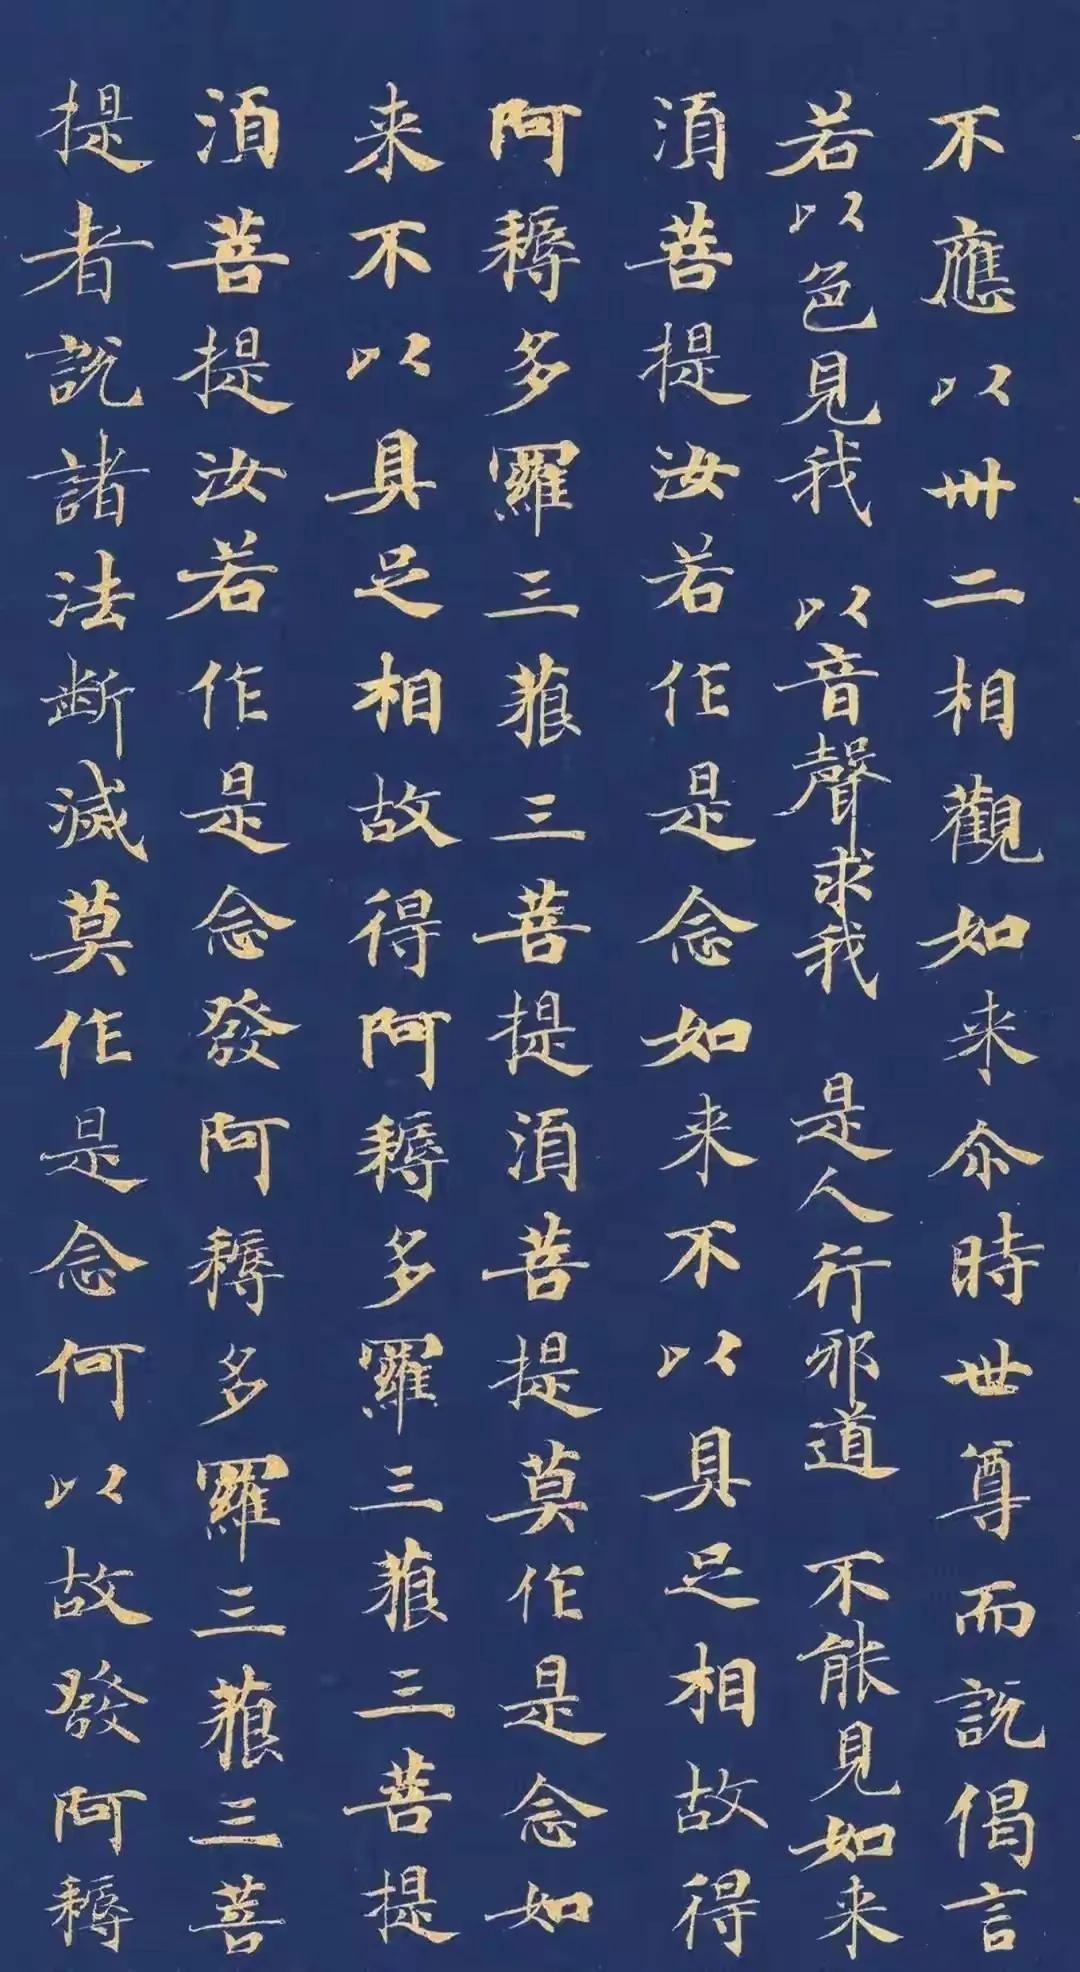 不應以卅二相觀如来尒時世尊而説偈言
若以色見我 以音聲求我 是人行邪道 不能見如来
湏菩提汝若作是念如来不以具足相故得
阿耨多羅三藐三菩提湏菩提莫作是念如
来不以具足相故得阿耨多羅三藐三菩提
湏菩提汝若作是念發阿耨多羅三藐三菩
提者説諸法断滅莫作是念何以故發阿耨